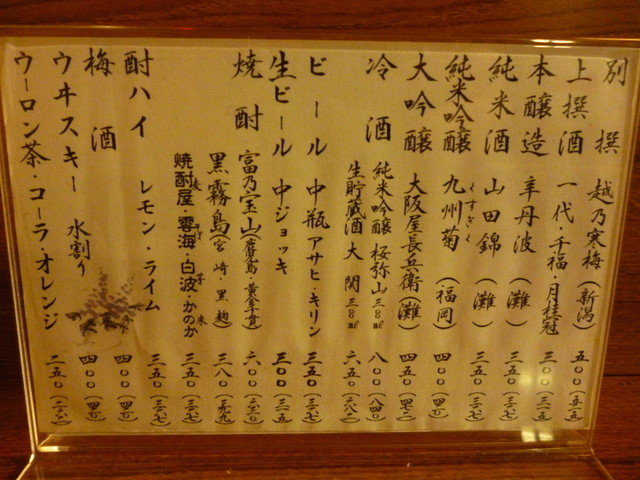 別撰 越乃寒梅（新潟） 五〇〇（五二五）
上撰酒 一代・千福・月桂冠 三〇〇（三一五）
本醸造 辛丹波（灘） 三五〇（三六七）
純米酒 山田錦（灘） 三五〇（三六七）
純米吟醸 九州菊（福岡） 四〇〇（四二〇）
くすぎく
大吟醸 大阪屋長兵衛（灘） 四五〇（四七二）
冷酒 純米吟醸 桜弥山 三〇〇㎖ 八〇〇（八四〇）
生貯蔵酒 大関 三〇〇㎖ 六五〇（六八二）
ビール 中瓶 アサヒ・キリン 三五〇（三六七）
生ビール 中ジョッキ 三〇〇（三一五）
焼酎 富乃宝山（鹿児島・黄金千貫） 六〇〇（六三〇）
黒霧島（宮崎・黒麹） 三八〇（三九九）
焼酎屋・雲海・白波・かのか 三五〇（三六七）
麦 そば 芋 米
酎ハイ レモン・ライム 三五〇（三六七）
梅酒 四〇〇（四二〇）
ウヰスキー 水割り 四〇〇（四二〇）
ウーロン茶・コーラ・オレンジ 二五〇（二六二）